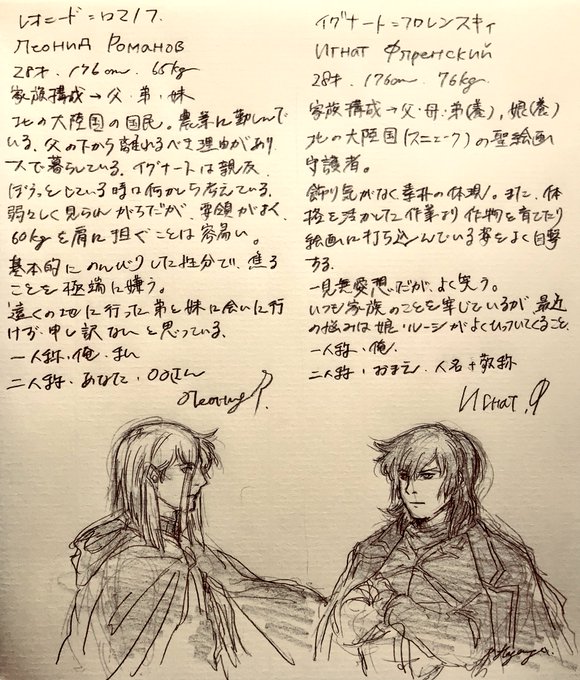 レオニード=ロマノフ
Леонид Романов
28才・176cm・65kg
家族構成→父・弟・妹
北の大陸国の国民。農業に勤しんで
いる。父の下から離れるべき理由があり
一人で暮らしている。イグナートは親友。
ぼうっとしている時は何かしら考えている。
弱々しく見られがちだが、要領がよく、
60kgを肩に担ぐことは容易い。
基本的にのんびりした性分で、焦る
ことを極端に嫌う。
遠くの地に行った弟と妹に会いに行
けず申し訳ないと思っている。
一人称・俺・私
二人称・あなた・〇〇さん
Леонид Р.
イグナート=フロレンスキィ
Игнат Флренский
28才・176cm・76kg
家族構成→父・母・弟(養)、娘(養)
北の大陸国(スニェーク)の聖絵画
守護者。
飾り気がなく素朴の体現。また、体
格を活かした作業より作物を育てたり
絵画に打ち込んでいる姿をよく目撃
する。
一見無愛想だが、よく笑う。
いつも家族のことを案じているが、最近
の悩みは娘・ルーシがよくひっついてくること。
一人称・俺
二人称・おまえ・人名+敬称
Игнат.Ф